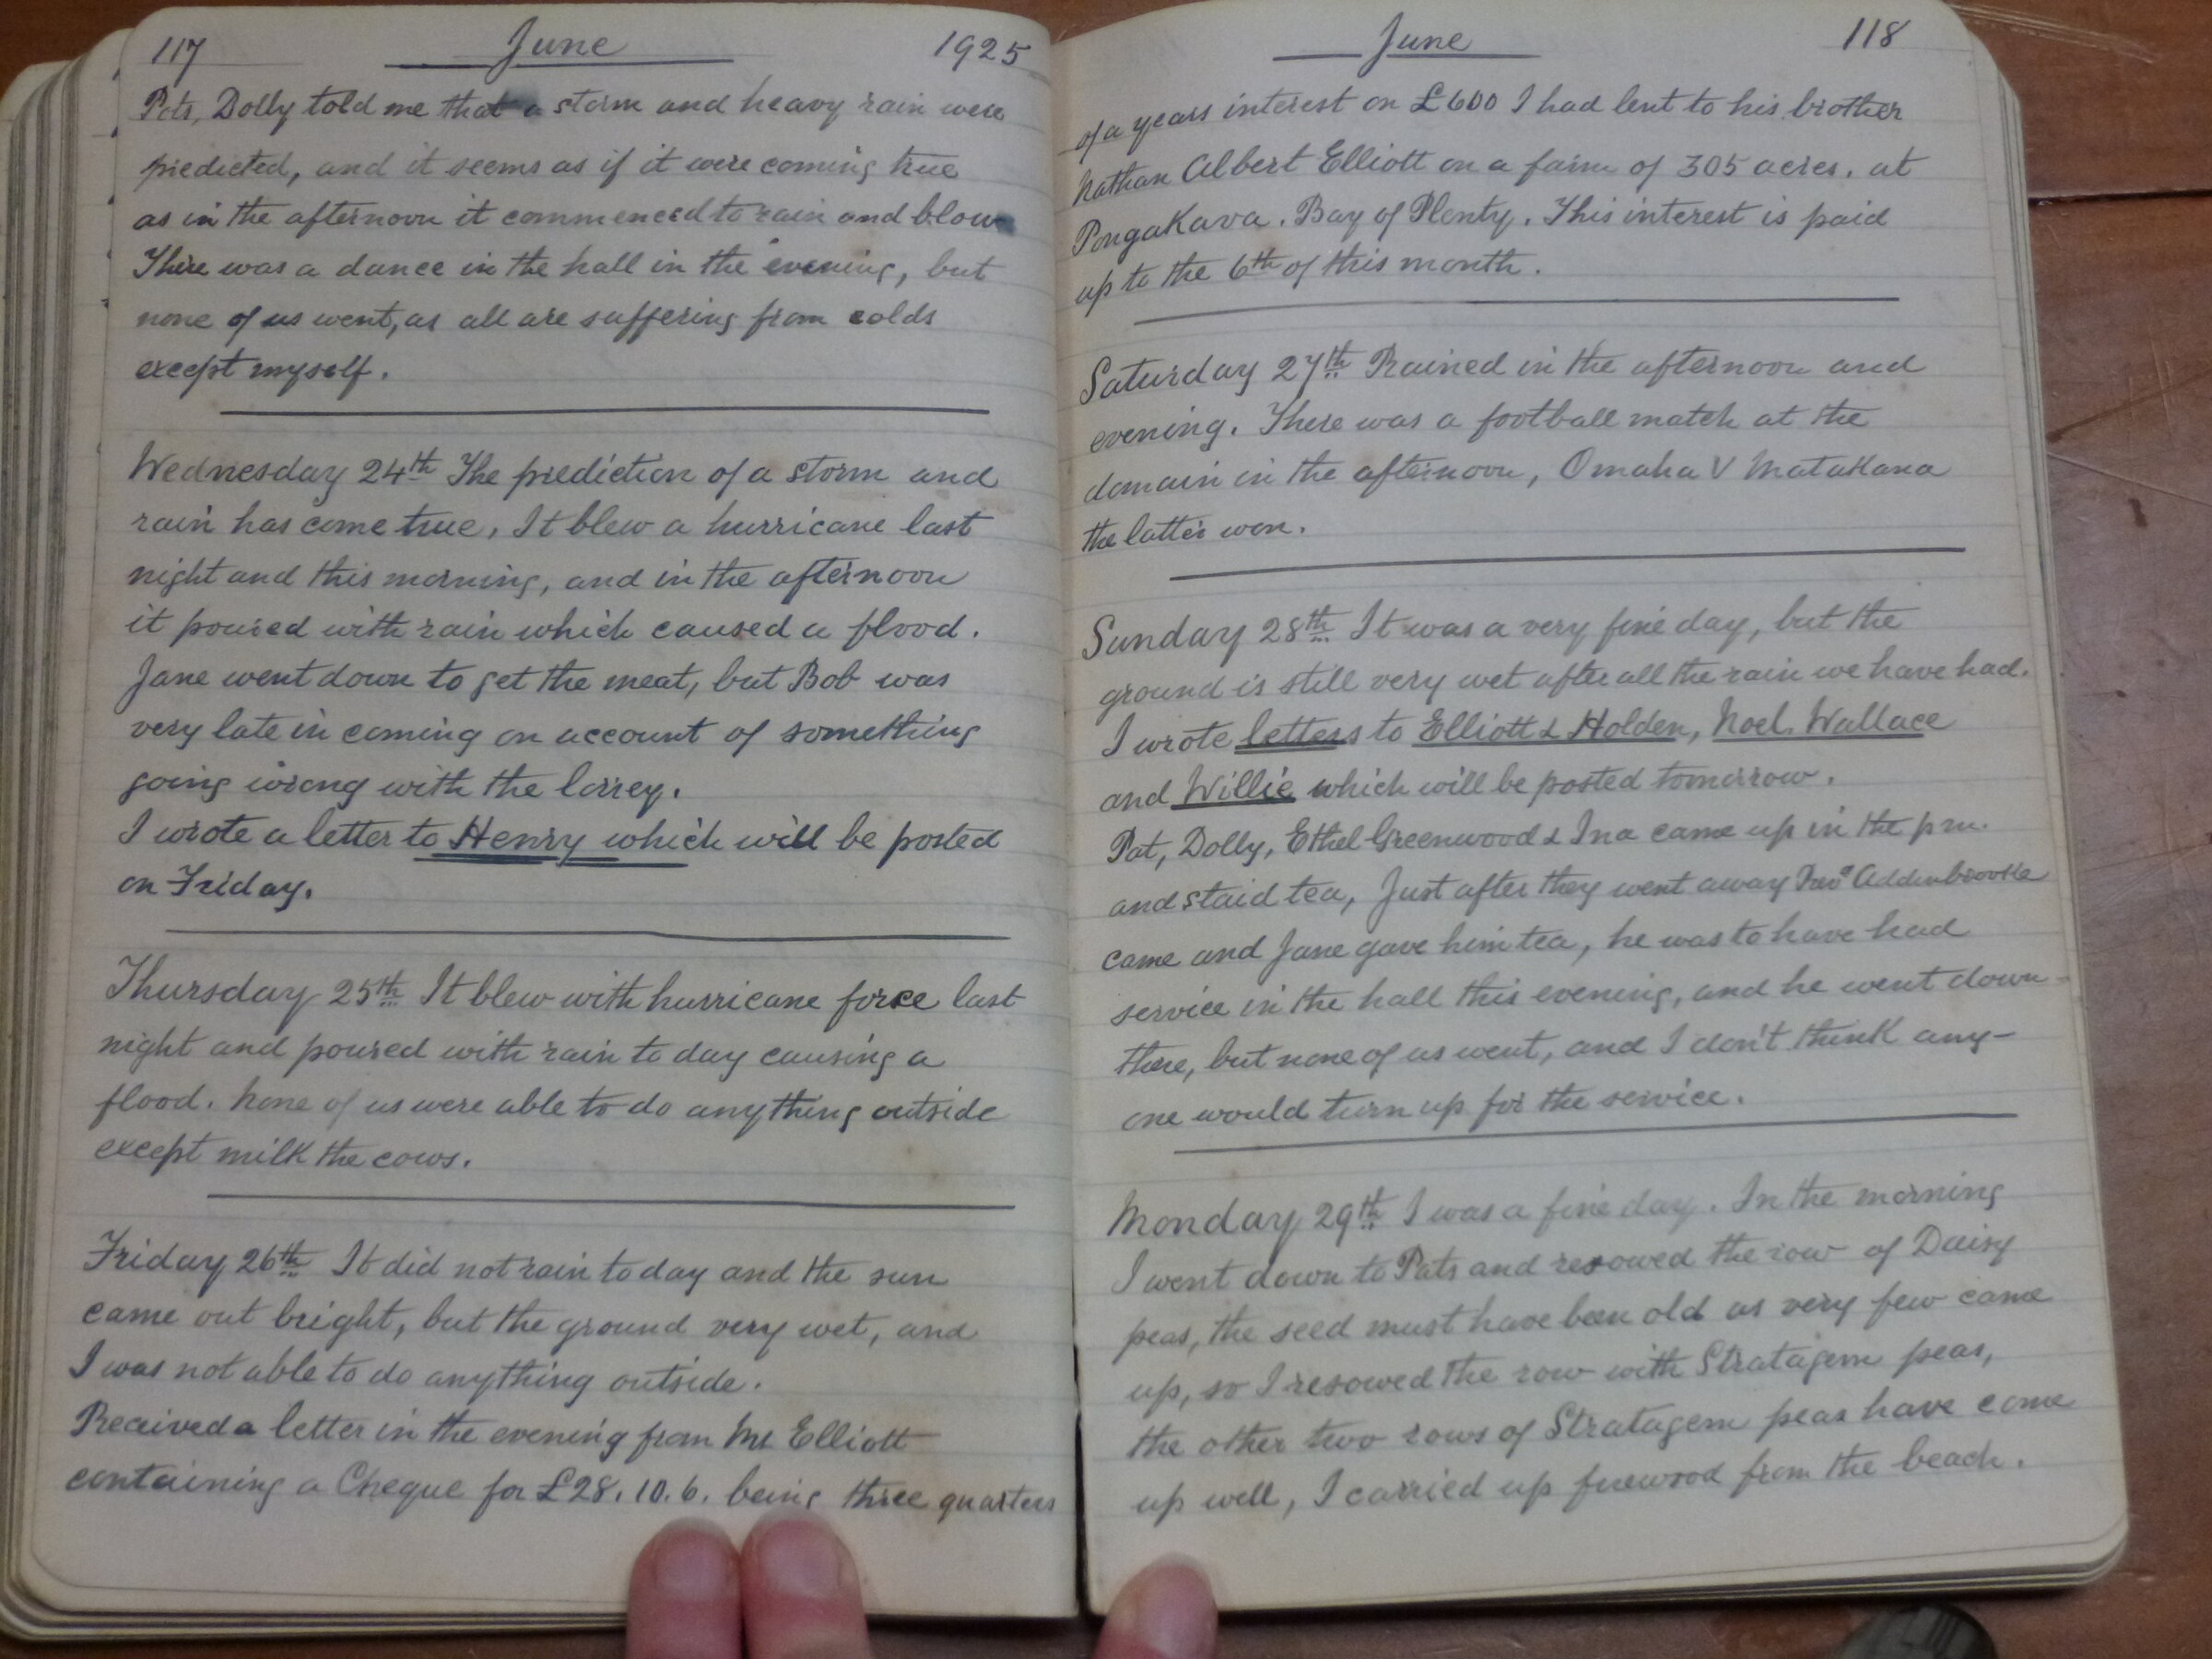 117 June 1925
Pats, Dolly told me that a storm and heavy rain were
predicted, and it seems as if it were coming true
as in the afternoon it commenced to rain and blow
There was a dance in the hall in the evening, but
none of us went, as all are suffering from colds
except myself.
Wednesday 24th The prediction of a storm and
rain has come true. It blew a hurricane last
night and this morning, and in the afternoon
it poured with rain which caused a flood.
Jane went down to get the meat, but Bob was
very late in coming on account of something
going wrong with the lorrey.
I wrote a letter to Henry which will be posted
on Friday.
Thursday 25th It blew with hurricane force last
night and poured with rain to day causing a
flood. None of us were able to do anything outside
except milk the cows.
Friday 26th It did not rain to day and the sun
came out bright, but the ground very wet, and
I was not able to do anything outside.
Received a letter in the evening from Mr Elliott
containing a Cheque for £28.10.6. being three quarters
June 118
of a years interest on £600 I had lent to his brother
Nathan Albert Elliott on a farm of 305 acres. at
PongaKava. Bay of Plenty. This interest is paid
up to the 6th of this month.
Saturday 27th Rained in the afternoon and
evening. There was a football match at the
domain in the afternoon, Omaha V Matakana
the latter won.
Sunday 28th It was a very fine day, but the
ground is still very wet after all the rain we have had.
I wrote letters to Elliott & Holden, Noel. Wallace
and Willie which will be posted tomorrow.
Pat, Dolly, Ethel Greenwood & Ina came up in the p.m.
and staid tea, Just after they went away Addenbrooke
came and Jane gave him tea, he was to have had
service in the hall this evening, and he went down
there, but none of us went, and I don't think any-
one would turn up for the service.
Monday 29th I was a fine day. In the morning
I went down to Pats and resowed the row of Daisy
peas, the seed must have been old as very few came
up, so I resowed the row with Stratagem peas,
the other two rows of Stratagem peas have come
up well, I carried up firewood from the beach.